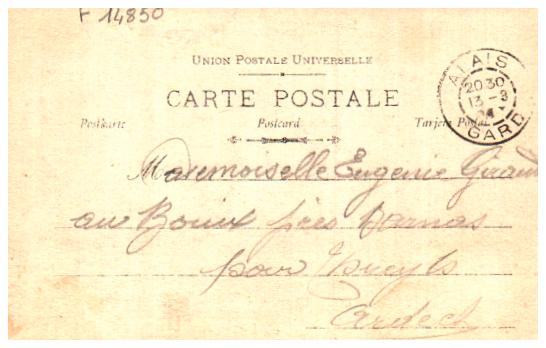 F 14850
UNION POSTALE UNIVERSELLE
CARTE POSTALE
Postkarte Postcard Tarjeta Postal
ALAIS
20 30
13 - 3
GARD
Mademoiselle Eugenie Giraud
au près Darnas
pour
Ardech